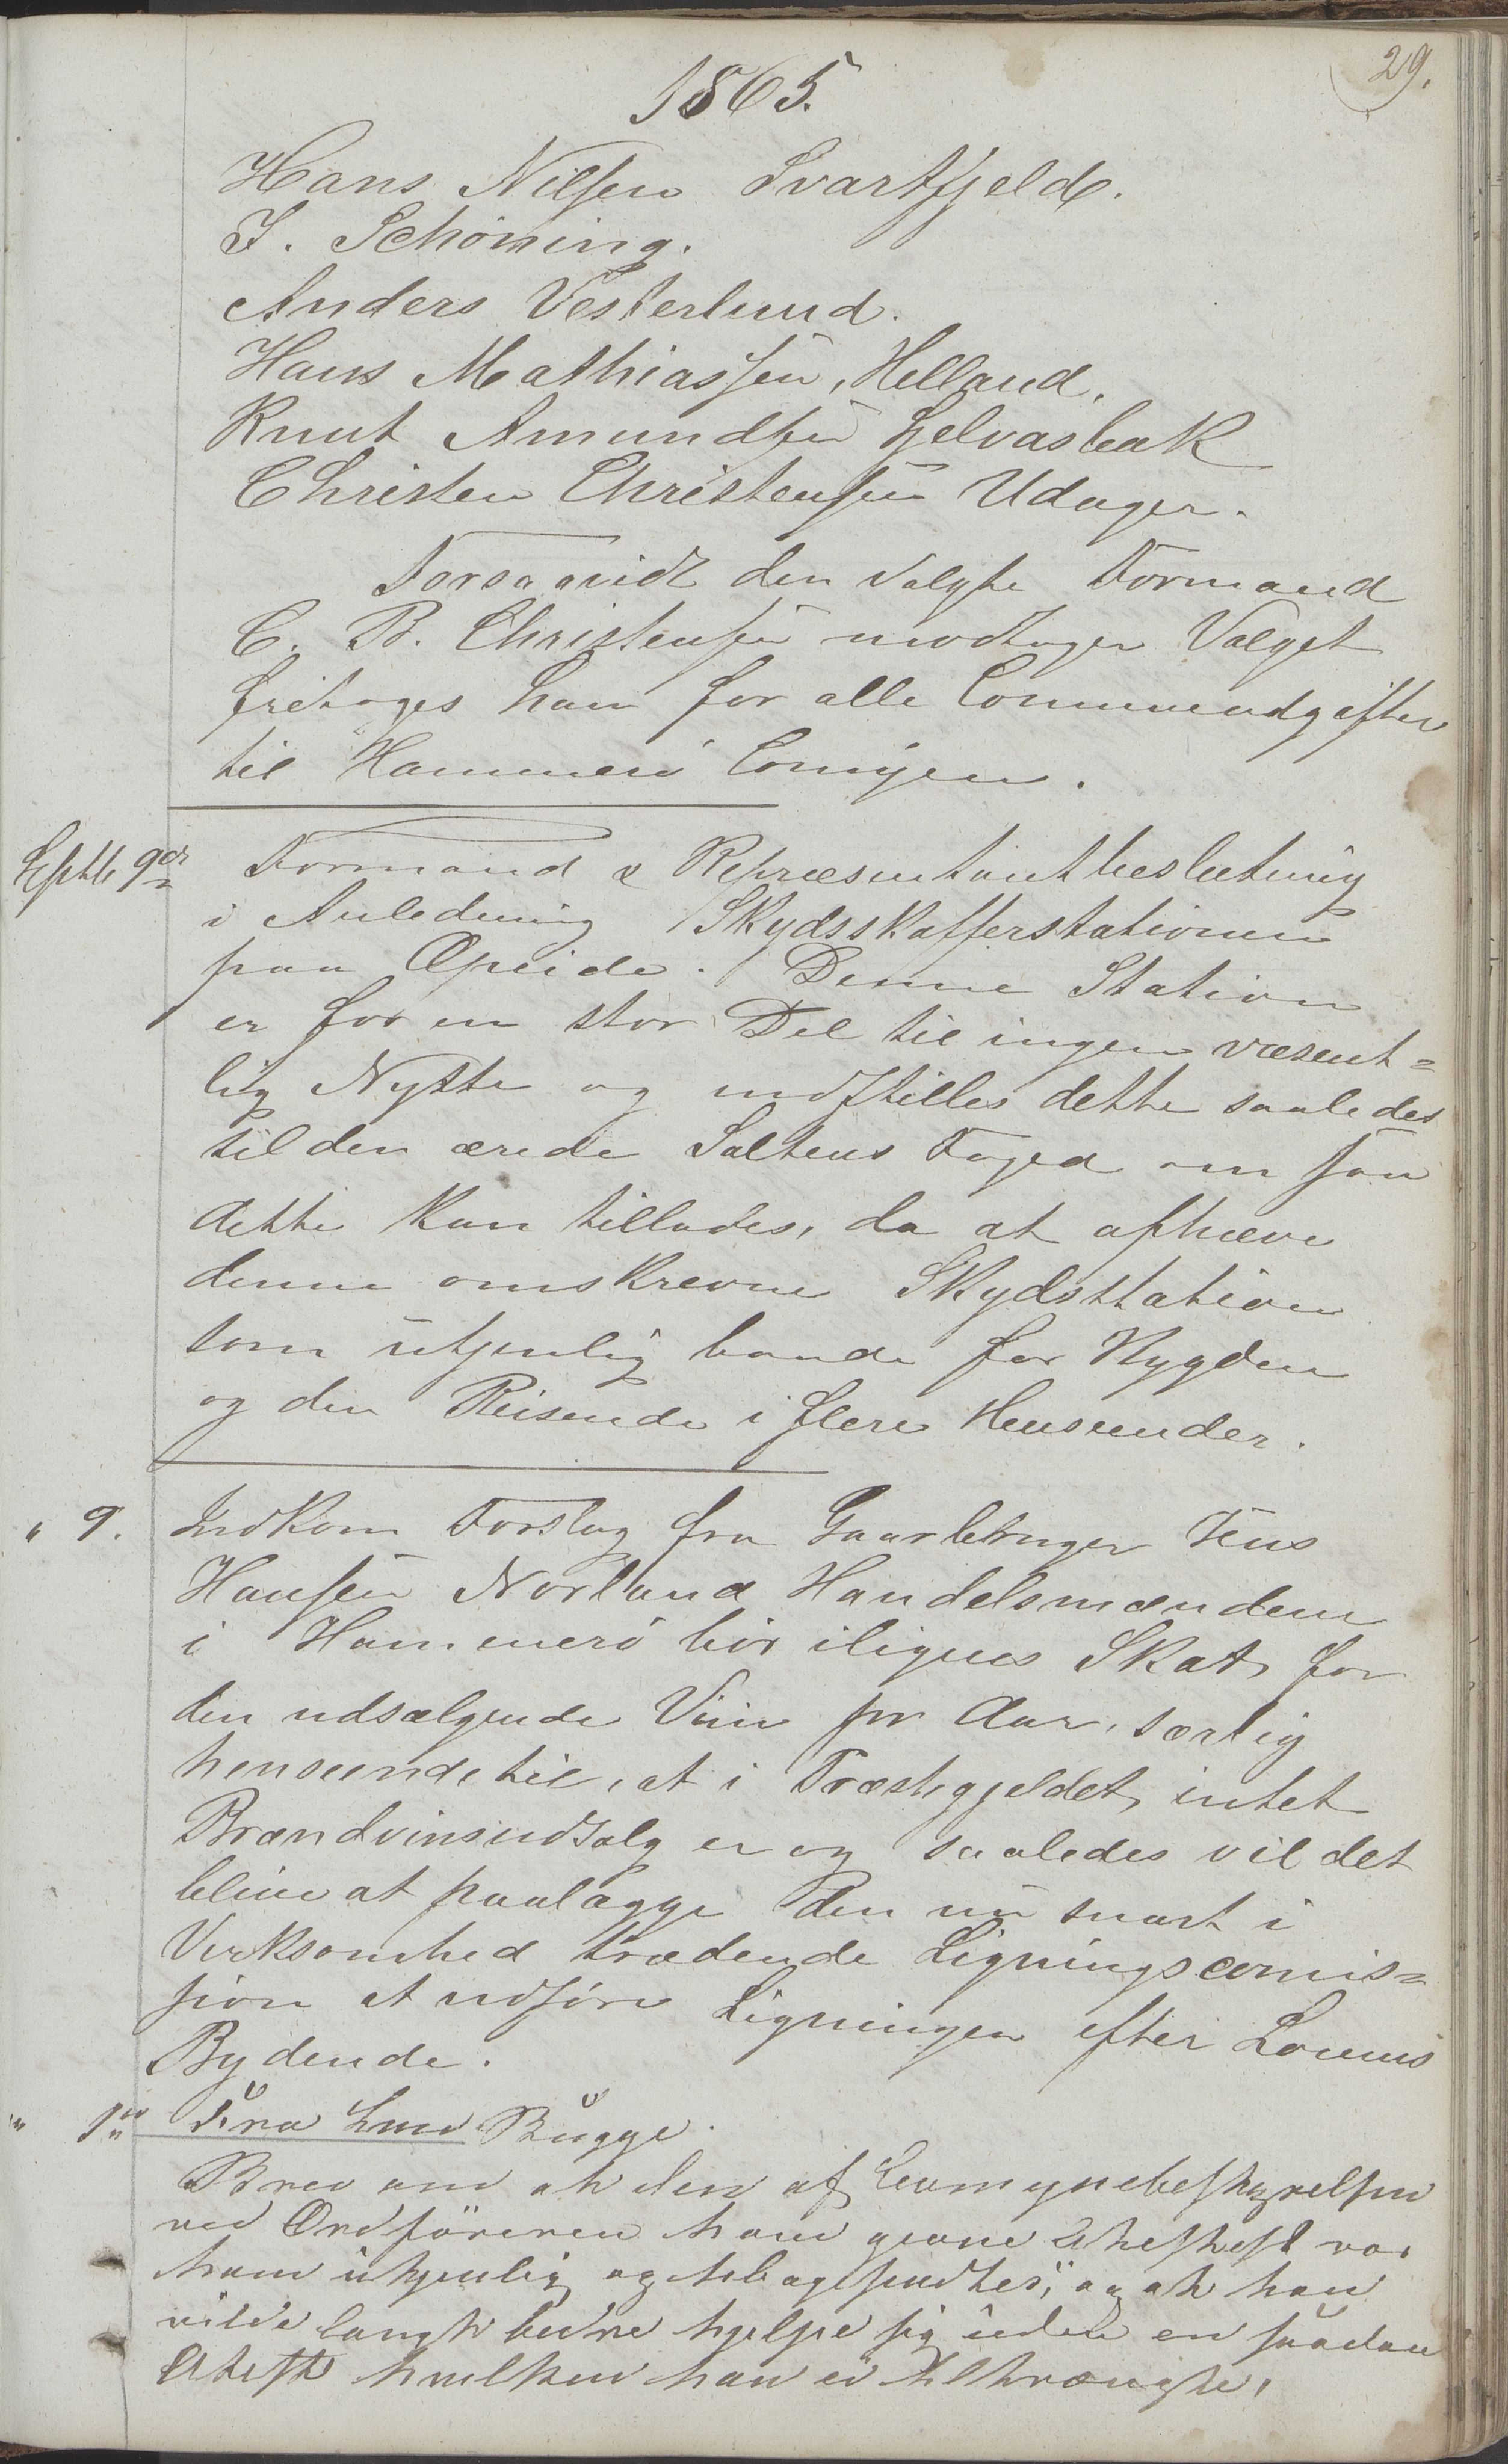 29.
1865.
Hans Nilsen Svartfjeld.
J. Schöning.
Anders Vesterlund.
Hans Mathiassen, Helland.
Knut Amundsen Sjelvasbak
Christen Christensen Udager.
Forsaavidt den valgte Formand
C. B. Christensen modtager Valget
fritages han for alle Communeudgifter
til Hammerö Comynen.
Septb 9de Formand & Repræsentantbeslutning
i Anledning Skydsskafferstationen
paa Opeide. Denne Station
er for en stor Del til ingen væsent=
lig Nytte og indstilles dette saaledes
til den ærede Saltens Foged om saa
dette kan tillades, da at ophæve
denne omskrevne Skydsstation
som utjenlig baade for Bygden
og den Reisende i flere Henseender.
" 9. Indkom Forslag fra Gaarbruger Jens
Hansen Norland Handelsmændene
i Hammerö bör ilignes Skat for
den udsælgende Viin pr Aar, særlig
henseende til, at i Præstegjeldet, intet
Brændvinsudsalg er og saaledes vil det
blive at paalægge den nu snart i
Virksomhed trædende Ligningscomis=
sion at udföre Ligningen efter Lovens
Bydende.
" 1" Fra Bugge.
Brev om at den af Comynebestyrelsen
ved Ordföreren ham givne Attest var
ham utjenlig og tilbagesendtes, og at han
vilde langt bedre hjelpe sig uden en saadan
Attest hvilken han ei tiltrængte,